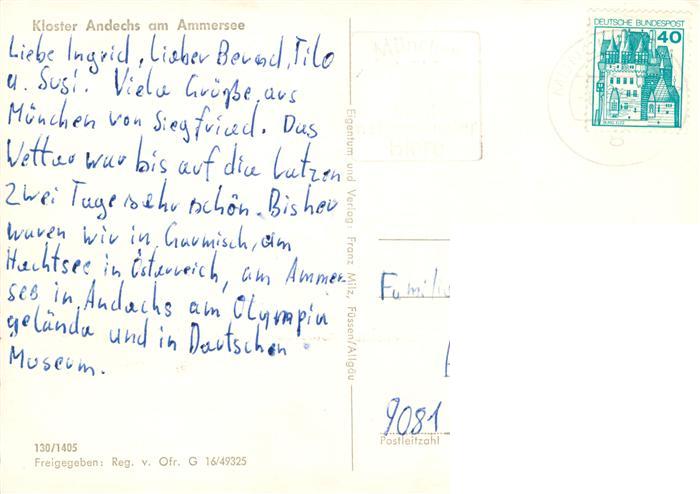 Kloster Andechs am Ammersee
Liebe Ingrid, Lieber Bernd, Tilo
u. Susi. Viele Grüße aus
München von Siegfried. Das
Wetter war bis auf die letzen
zwei Tage sehr schön. Bisher
waren wir in Garmisch, am
Hechtsee in Österreich, am Ammer-
see in Andechs am Olympia
gelände und in Deutschen
Museum.
130/1405
Freigegeben: Reg. v. Ofr. G 16/49325
Eigentum und Verlag: Franz Milz, Füssen/Allgäu
DEUTSCHE BUNDESPOST
40
BURG ELTZ
Familie
9081
Postleitzahl